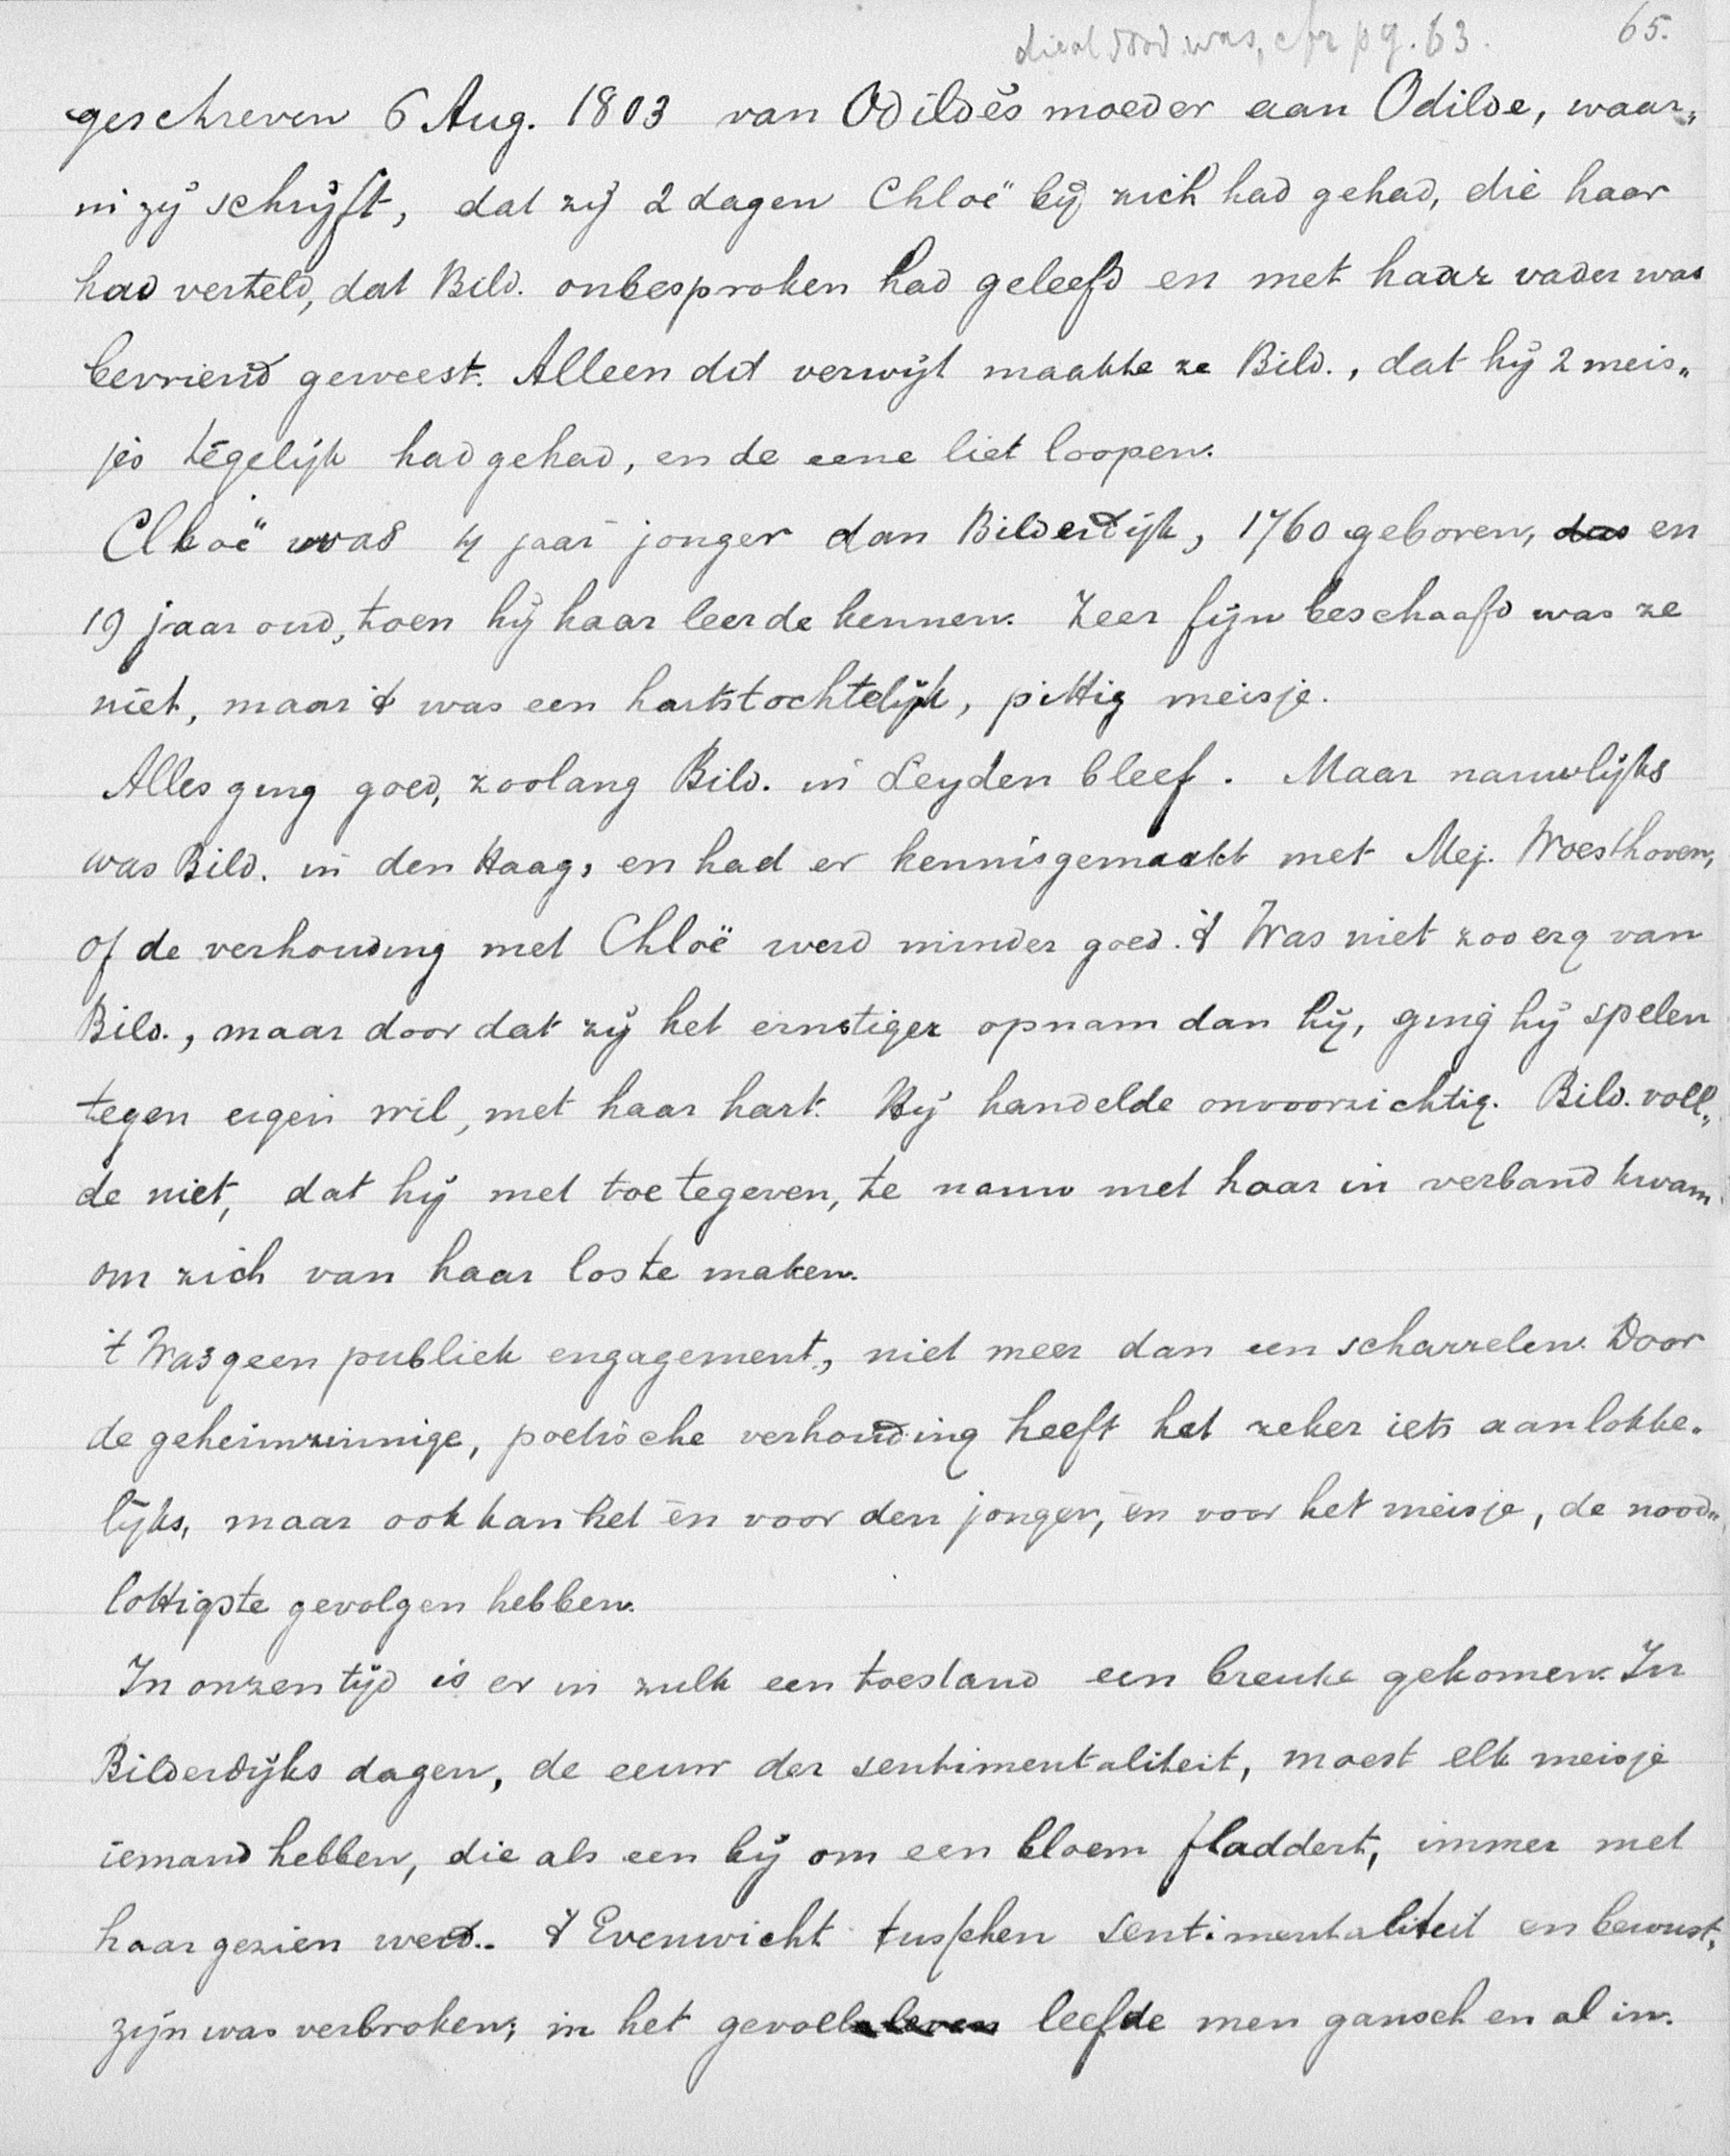 die al dood was, cfr pg. 63. 65.
geschreven 6 Aug. 1803 van Odilde's moeder aan Odilde, waar„
in zij schrijft, dat zij 2 dagen Chloë bij zich had gehad, die haar
had verteld, dat Bild. onbesproken had geleefd en met haar vader was
bevriend geweest. Alleen dit verwijt maakte ze Bild., dat hij 2 meis„
jes tegelijk had gehad, en de eene liet loopen.
Chloë was 4 jaar jonger dan Bilderdijk, 1760 geboren, das en
19 jaar oud, toen hij haar leerde kennen. Zeer fijn beschaafd was ze
niet, maar 't was een hartstochtelijk, pittig meisje.
Alles ging goed, zoolang Bild. in Leyden bleef. Maar nauwlijks
was Bild. in den Haag, en had er kennisgemaakt met Mej. Woesthoven,
of de verhouding met Chloë werd minder goed. 't Was niet zoo erg van
Bild., maar door dat zij het ernstiger opnam dan hij, ging hij spelen
tegen eigen wil, met haar hart. Hij handelde onvoorzichtig. Bild. voel„
de niet, dat hij met toe tegeven, te nauw met haar in verband kwam
om zich van haar los te maken.
't Was geen publiek engagement, niet meer dan een scharrelen. Door
de geheimzinnige, poetische verhouding heeft het zeker iets aanlokke„
lijks, maar ook kan het èn voor den jongen, èn voor het meisje, de nood„
lottigste gevolgen hebben.
In onzen tijd is er in zulk een toestand een breuke gekomen. In
Bilderdijks dagen, de eeuw der sentimentaliteit, moest elk meisje
iemand hebben, die als een bij om een bloem fladdert, immer met
haar gezien werd. 't Evenwicht tusschen sentimentaliteit en bewust„
zijn was verbroken; in het gevoelsleven leefde men gansch en al in.